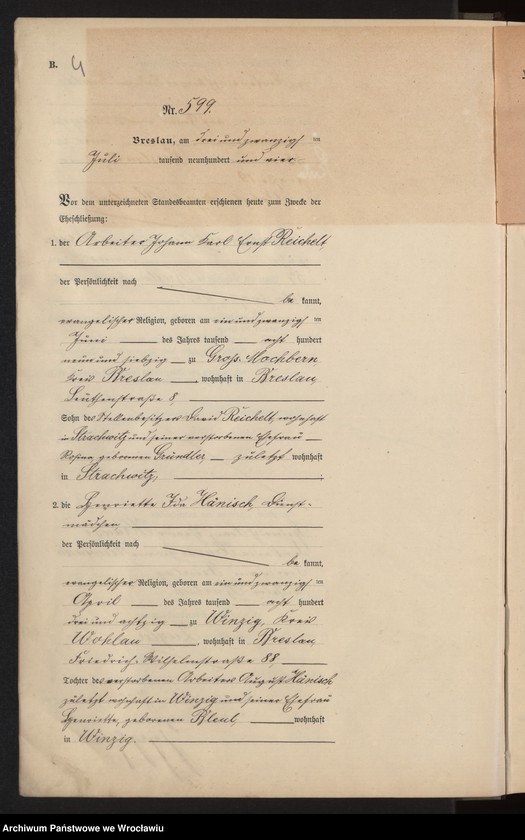 B. 4
Nr. 599.
Breslau, am drei und zwanzigsten
Juli tausend neunhundert und vier
Vor dem unterzeichneten Standesbeamten erschienen heute zum Zwecke der
Eheschließung:
1. der Arbeiter Johann Karl Ernst Reichelt
der Persönlichkeit nach
be kannt,
evangelischer Religion, geboren am ein und zwanzigsten
Juni des Jahres tausend acht hundert
neun und siebzig zu Groß Mochbern,
Kreis Breslau, wohnhaft in Breslau,
Leuthenstraße 8
Sohn des Stellenbesitzers David Reichelt, wohnhaft
in Strachwitz und seiner verstorbenen Ehefrau
Rosina geborenen Gründler, zuletzt wohnhaft
in Strachwitz,
2. die Henriette Ida Hänisch, Dienst-
mädchen,
der Persönlichkeit nach
be kannt,
evangelischer Religion, geboren am ein und zwanzigsten
April des Jahres tausend acht hundert
drei und achtzig zu Winzig, Kreis
Wohlau, wohnhaft in Breslau,
Friedrich-Wilhelmstraße 88,
Tochter des verstorbenen Arbeiters August Hänisch,
zuletzt wohnhaft in Winzig und seiner Ehefrau
Henriette, geborenen wohnhaft
in Winzig.
Archiwum Państwowe we Wrocławiu